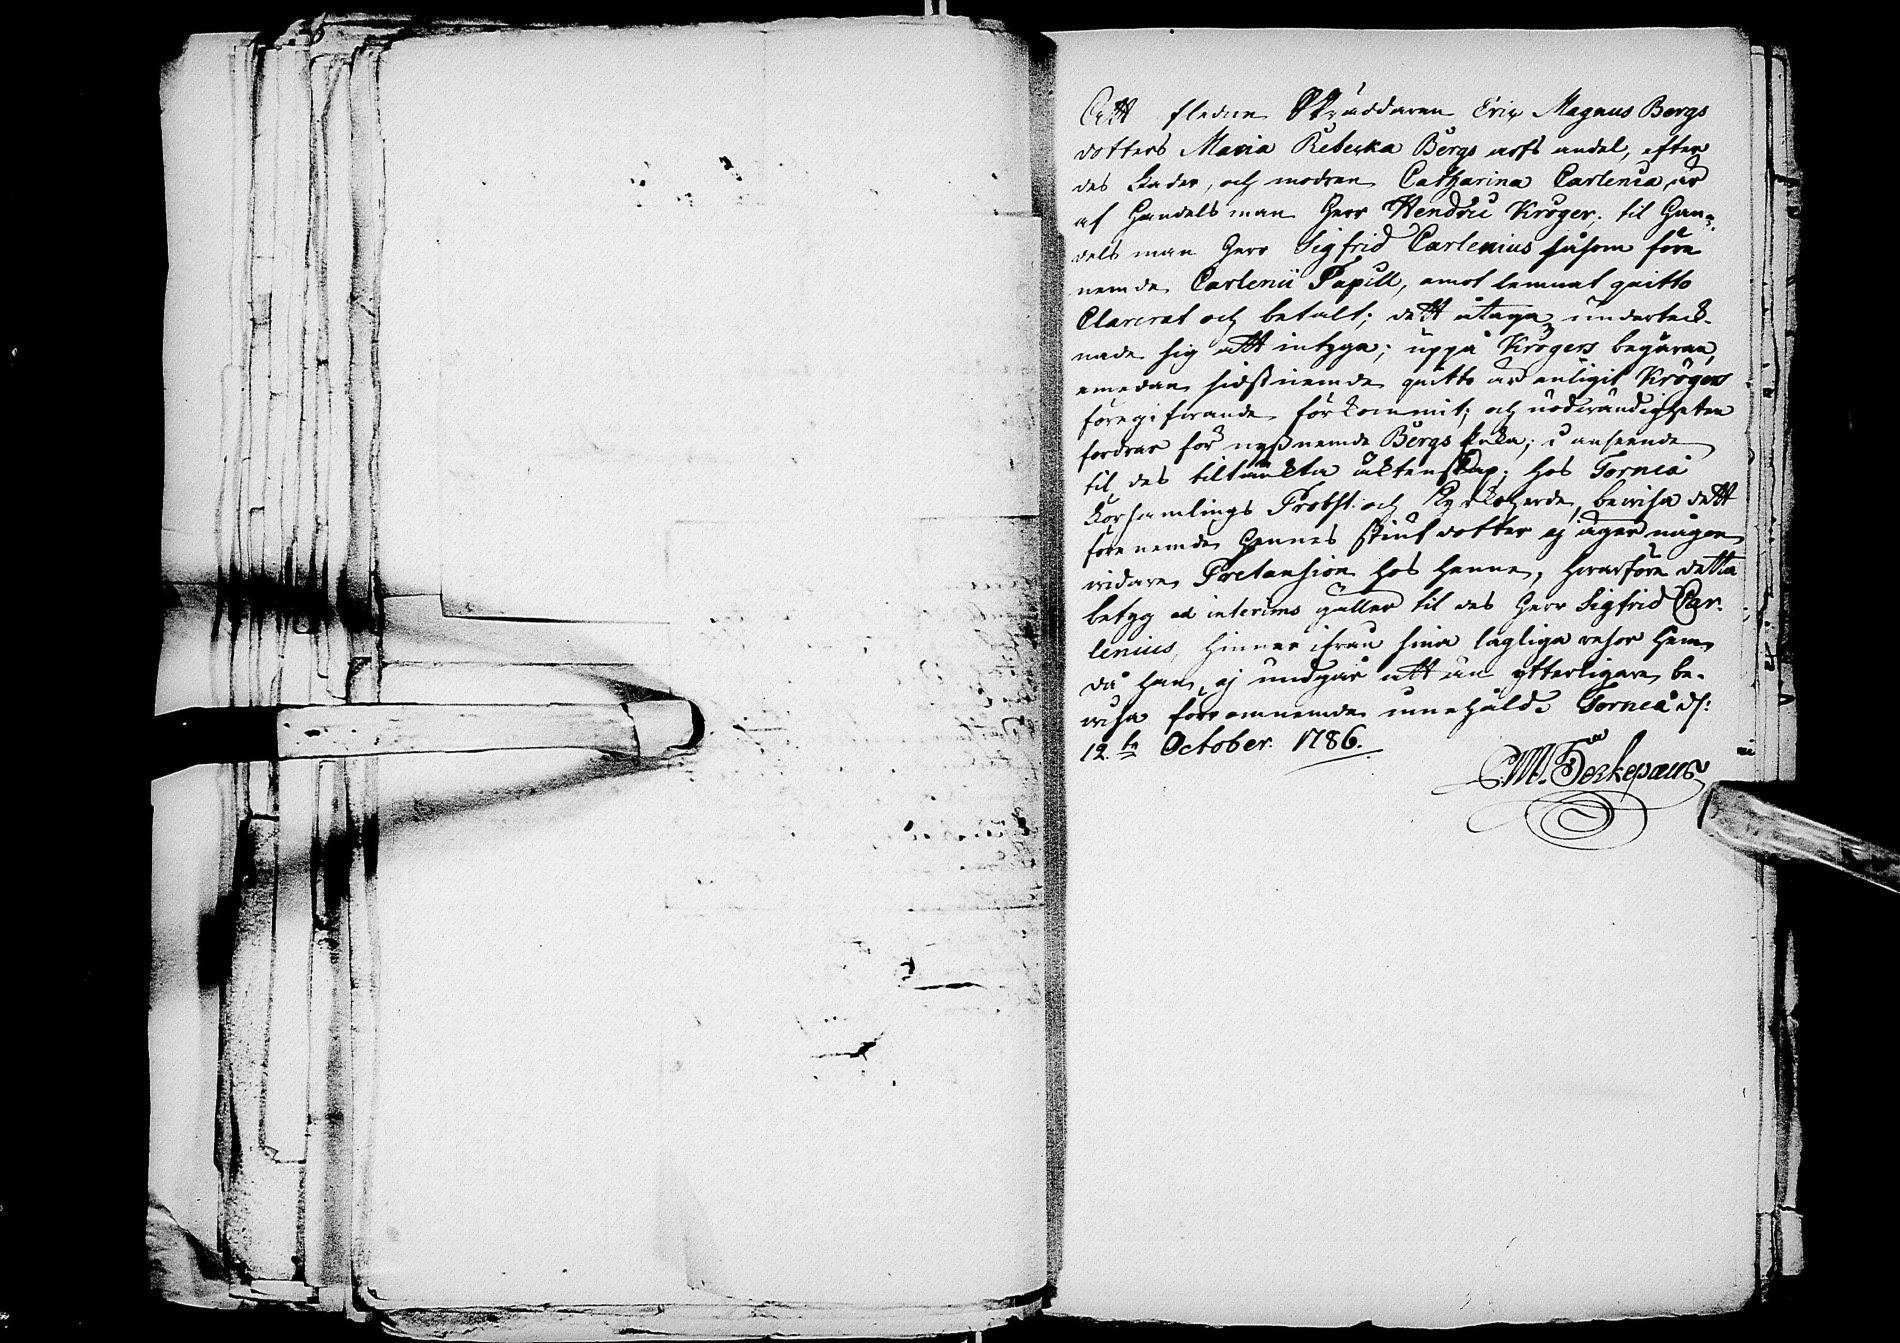 Att afledne Skräddaren Eric Magnus Bergs
dotters Maria Rebecka Bergs arfs andel, efter
des fader, och modren Catharina Carlenia är
af Handels man Herr Hendric Kröger, til Han-
dels man Herr Sigfrid Carlenius såsom före
nemde Carlenii Pupill, emot lemnat qvitto
Clarerat och betalt; dett åtager underteck-
nade sig att intyga; uppå Krögers begäran,
emedan sidstnemde qvitto är enligit Krögers
föregifvande förkommit; och nödvändigheten
fordrar för nyssnemde Bergs Enka; i anseende
til des tiltänkta äktenskap; hos Torneå
Församlings Probst och Kyrkoherde, bevisa dett
förenemde hennes stiuf dotter ej äger någon
vidare Pretension hos henne, hvarföre detta
betyg ad interims gäller til des Herr Sigfrid Car-
lenius, hinner ifrån sina lagliga resor hem
då han ej undgår att än ytterligare be-
visa förromnemde innehåld. Torneå d:
12te October 1786.